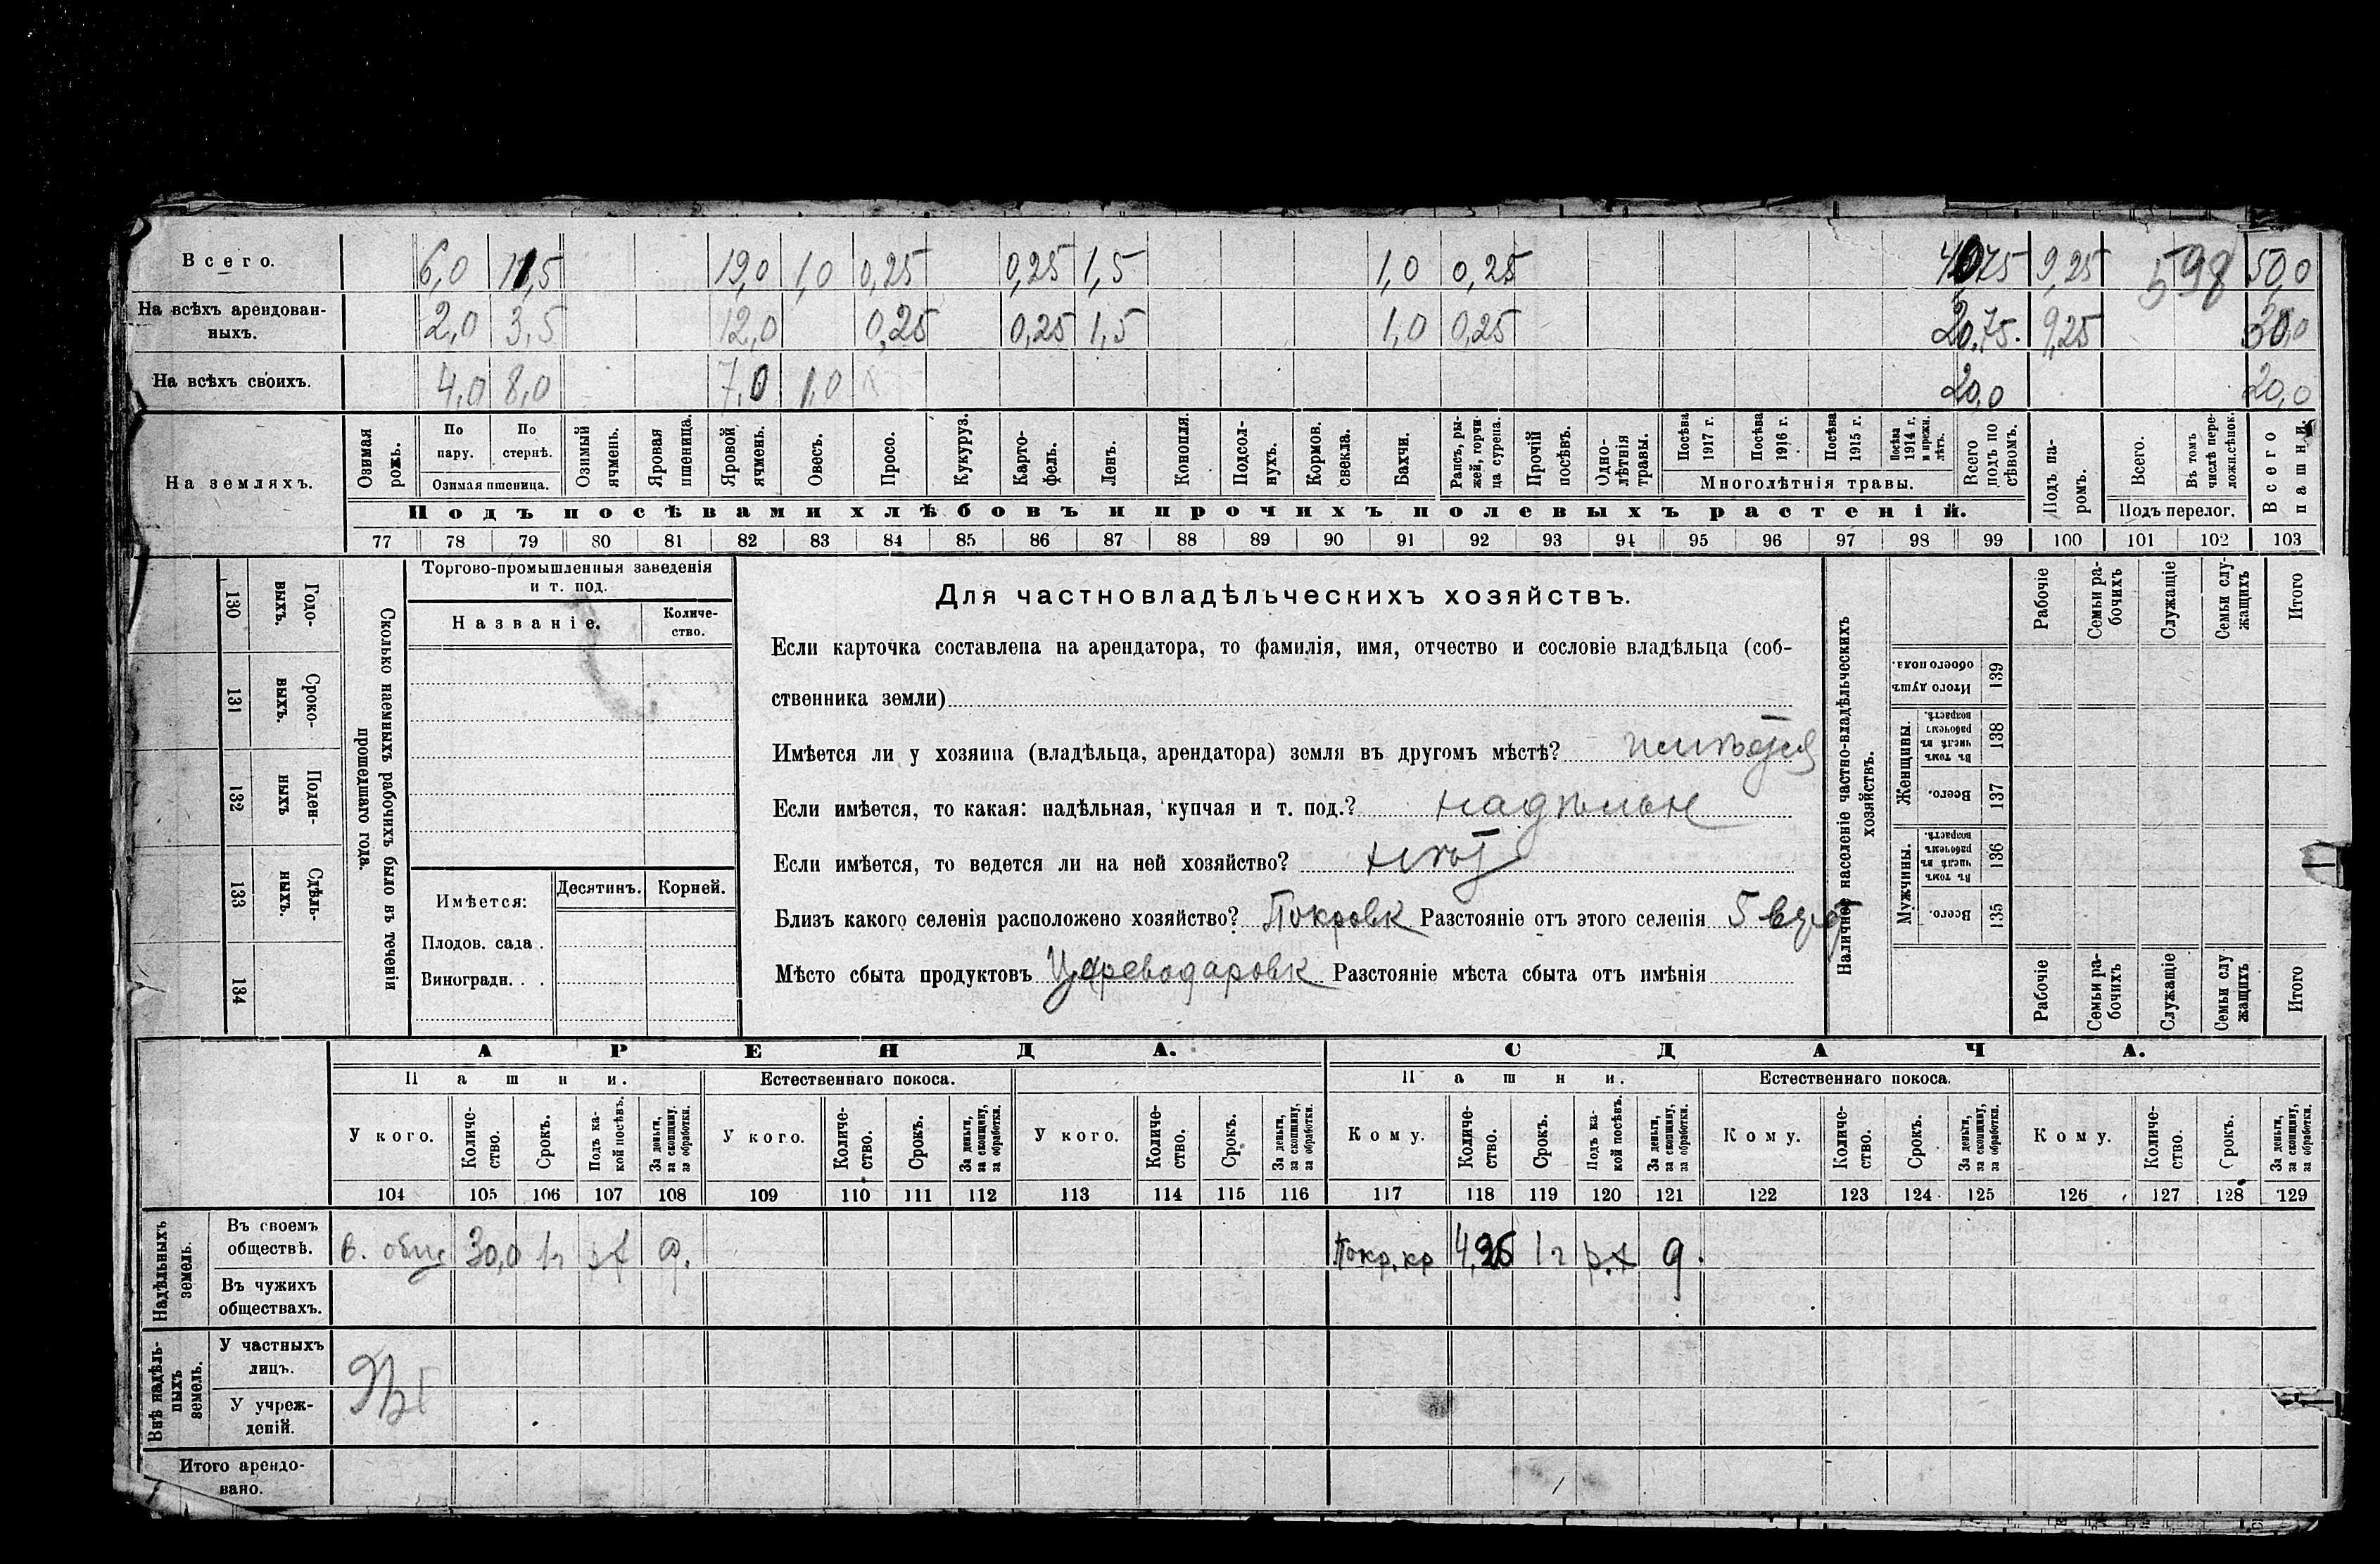 Всего. 6,0 11,5 19,0 1,0 0,25 0,25 1,5 1,0 0,25 40,75 9,25 598 50,0
На всѣхъ арендован-
ныхъ. 2,0 3,5 12,0 0,25 0,25 1,5 1,0 0,25 20,75. 9,25 30,0
На всѣхъ своихъ. 4,0 8,0 7,0 1,0 20,0 20,0
На земляхъ.
Озимая рожь.
По пару.
По стернѣ.
Озимая пшеница.
Озимый ячмень.
Яровая пшеница.
Яровой ячмень.
Овесъ.
Просо.
Кукуруз.
Карто-фель.
Ленъ.
Конопля.
Подсол-нухъ.
Кормов. свекла.
Бахчи.
Рапсъ, ры-жей, горчи-ца сурепа.
Прочій посѣвъ.
Одно-лѣтнія травы.
Посѣва 1917 г.
Посѣва 1916 г.
Посѣва 1915 г.
Посѣва 1914 г. и прежн. лѣтъ.
Многолѣтнія травы.
Всего подъ по сѣвомъ.
Подъ па-ромъ.
Всего.
Въ томъ числѣ пере-ложн.сѣнок.
Подъ перелог.
Всего пашни.
Подъ посѣвами хлѣбовъ и прочихъ полевыхъ растеній.
77 78 79 80 81 82 83 84 85 86 87 88 89 90 91 92 93 94 95 96 97 98 99 100 101 102 103
130 Годо-выхъ.
131 Сроко-выхъ.
132 Поден-ныхъ
133 Сдѣль-ныхъ.
134
Сколько наемныхъ рабочихъ было въ теченіи
прошедшаго года.
Торгово-промышленныя заведенія
и т. под.
Названіе. Количе-ство.
Имѣется: Десятинъ. Корней.
Плодов. сада .
Виноградн. . .
Для частновладѣльческихъ хозяйствъ.
Если карточка составлена на арендатора, то фамилія, имя, отчество и сословіе владѣльца (соб-
ственника земли)
Имѣется ли у хозяина (владѣльца, арендатора) земля въ другомъ мѣстѣ? имѣется
Если имѣется, то какая: надѣльная, купчая и т. под.? надѣльн
Если имѣется, то ведется ли на ней хозяйство? нѣт
Близъ какого селенія расположено хозяйство? Покровк Разстояніе отъ этого селенія 5 вер
Мѣсто сбыта продуктовъ Цареводаровк Разстояніе мѣста сбыта отъ имѣнія
Наличное населеніе частно-владѣльческихъ
хозяйствъ.
Рабочіе
Семьи ра-бочихъ
Служащіе
Семьи слу-жащихъ
Итого
Итого душъ обоего пола. 139
Женщины.
Въ томъ числѣ въ рабочемъ возрастѣ. 138
Всего. 137
Мужчины.
Въ томъ числѣ въ рабочемъ возрастѣ. 136
Всего. 135
Рабочіе
Семьи ра-бочихъ
Служащіе
Семьи слу жащихъ
Итого
АРЕНДА. СДАЧА.
Пашни. Естественнаго покоса. Пашни. Естественнаго покоса.
У кого. Количе-ство. Срокъ. Подъ ка-кой посѣвъ. За деньги, за скопщину, за обработки.
У кого. Количе-ство. Срокъ. За деньги, за скопщину, за обработки.
У кого. Количе-ство. Срокъ. За деньги, за скопщину, за обработки.
Кому. Количе-ство. Срокъ. Подъ ка-кой посѣвъ. За деньги, за скопщину, за обработки.
Кому. Количе-ство. Срокъ. За деньги, за скопщину, за обработки.
Кому. Количе-ство. Срокъ. За деньги, за скопщину, за обработки.
104 105 106 107 108 109 110 111 112 113 114 115 116 117 118 119 120 121 122 123 124 125 126 127 128 129
Надѣльныхъ земель.
Въ своемъ
обществѣ. в. общ 30,0 1г д. Покр. кр 1г д.
Въ чужихъ
обществахъ.
Внѣ надѣль-ныхъ земель.
У частныхъ
лицъ.
У учреж-
деній.
Итого арендо-
вано.